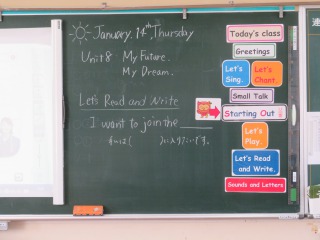 January. 14th Thursday
Unit 8 My Future.
My Dream.
Let's Read and Write
I want to join the
Today's class
Greetings
Let's
Sing.
Let's
Chant.
Small Talk
Starting Out
Let's
Play.
Let's Read
and Write.
Sounds and Letters